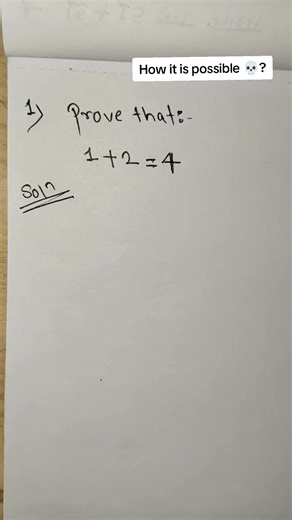 How it is possible 💀?
1) Prove that:-
1+2=4
Soln